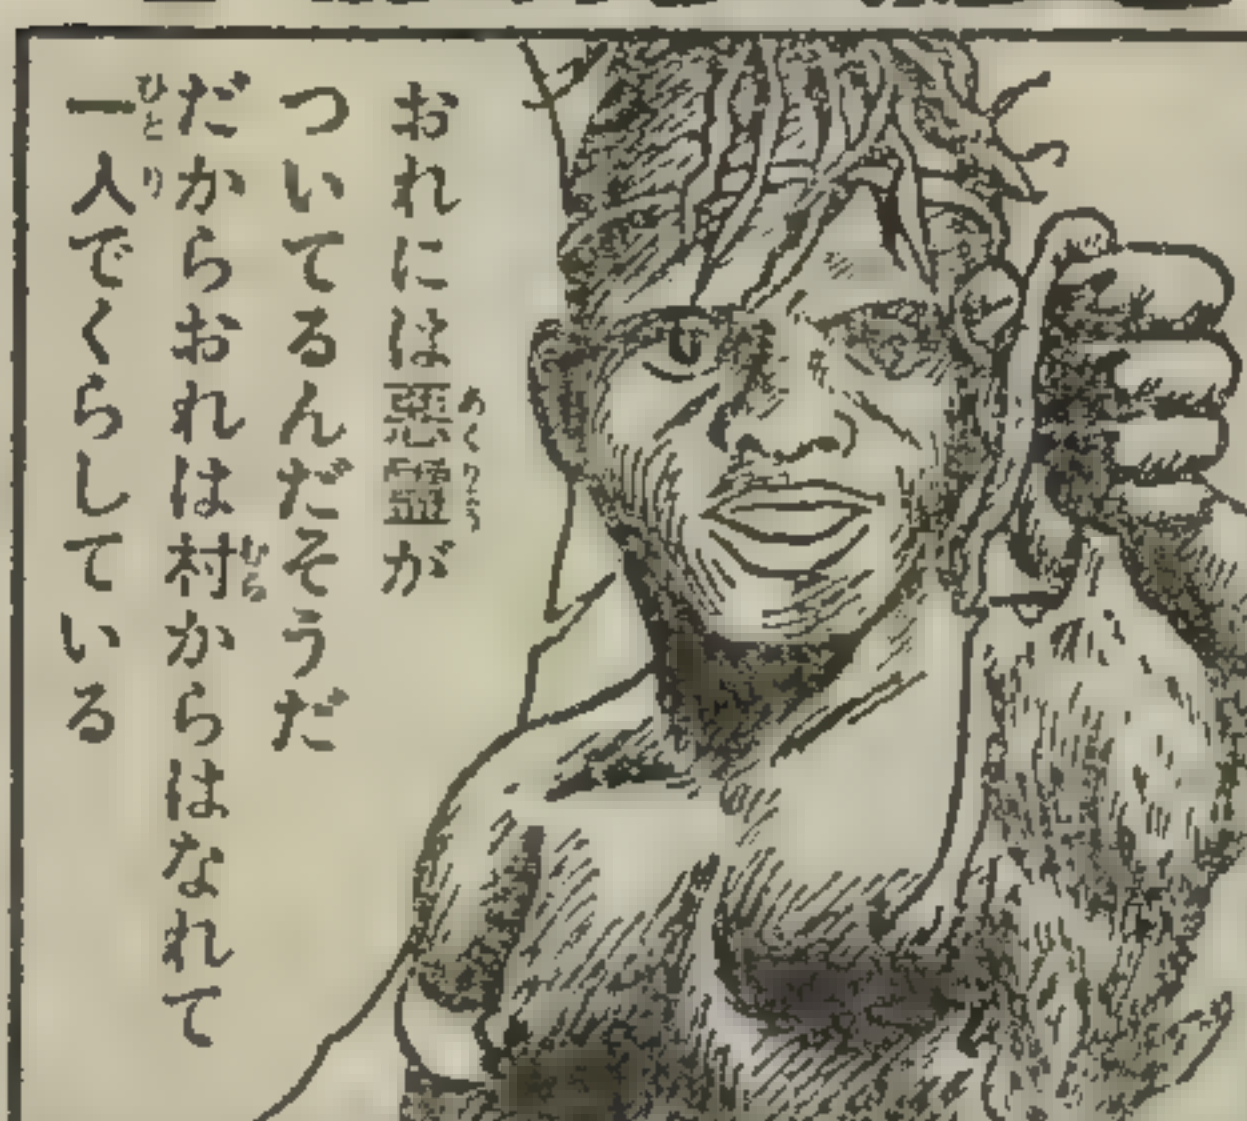 おれには惡靈が
ついてるんだそうだ
だからおれは村からはなれて
一人でくらしている